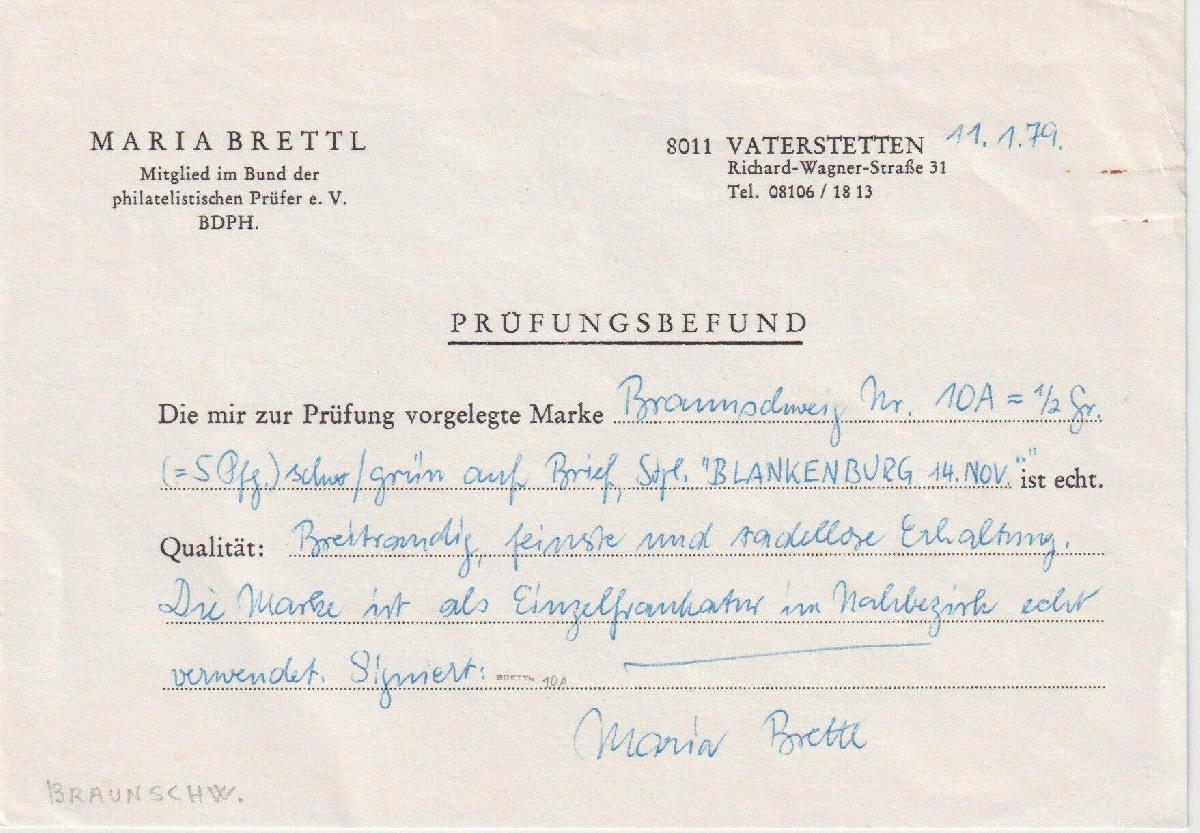 MARIA BRETTL
Mitglied im Bund der
philatelistischen Prüfer e. V.
BDPH.
8011 VATERSTETTEN 11.1.79.
Richard-Wagner-Straße 31
Tel. 08106 / 18 13
PRÜFUNGSBEFUND
Die mir zur Prüfung vorgelegte Marke Braunschweig Nr. 10A = 1/2 Gr.
(=5 Pfg.) schw/grün auf Brief, Stpl. "BLANKENBURG 14.NOV." ist echt.
Qualität: Breitrandig, feinste und tadellose Erhaltung.
Die Marke ist als Einzelfrankatur im Nahbezirk echt
verwendet. Signiert: BRETTL 10A
Maria Brettl
BRAUNSCHW.